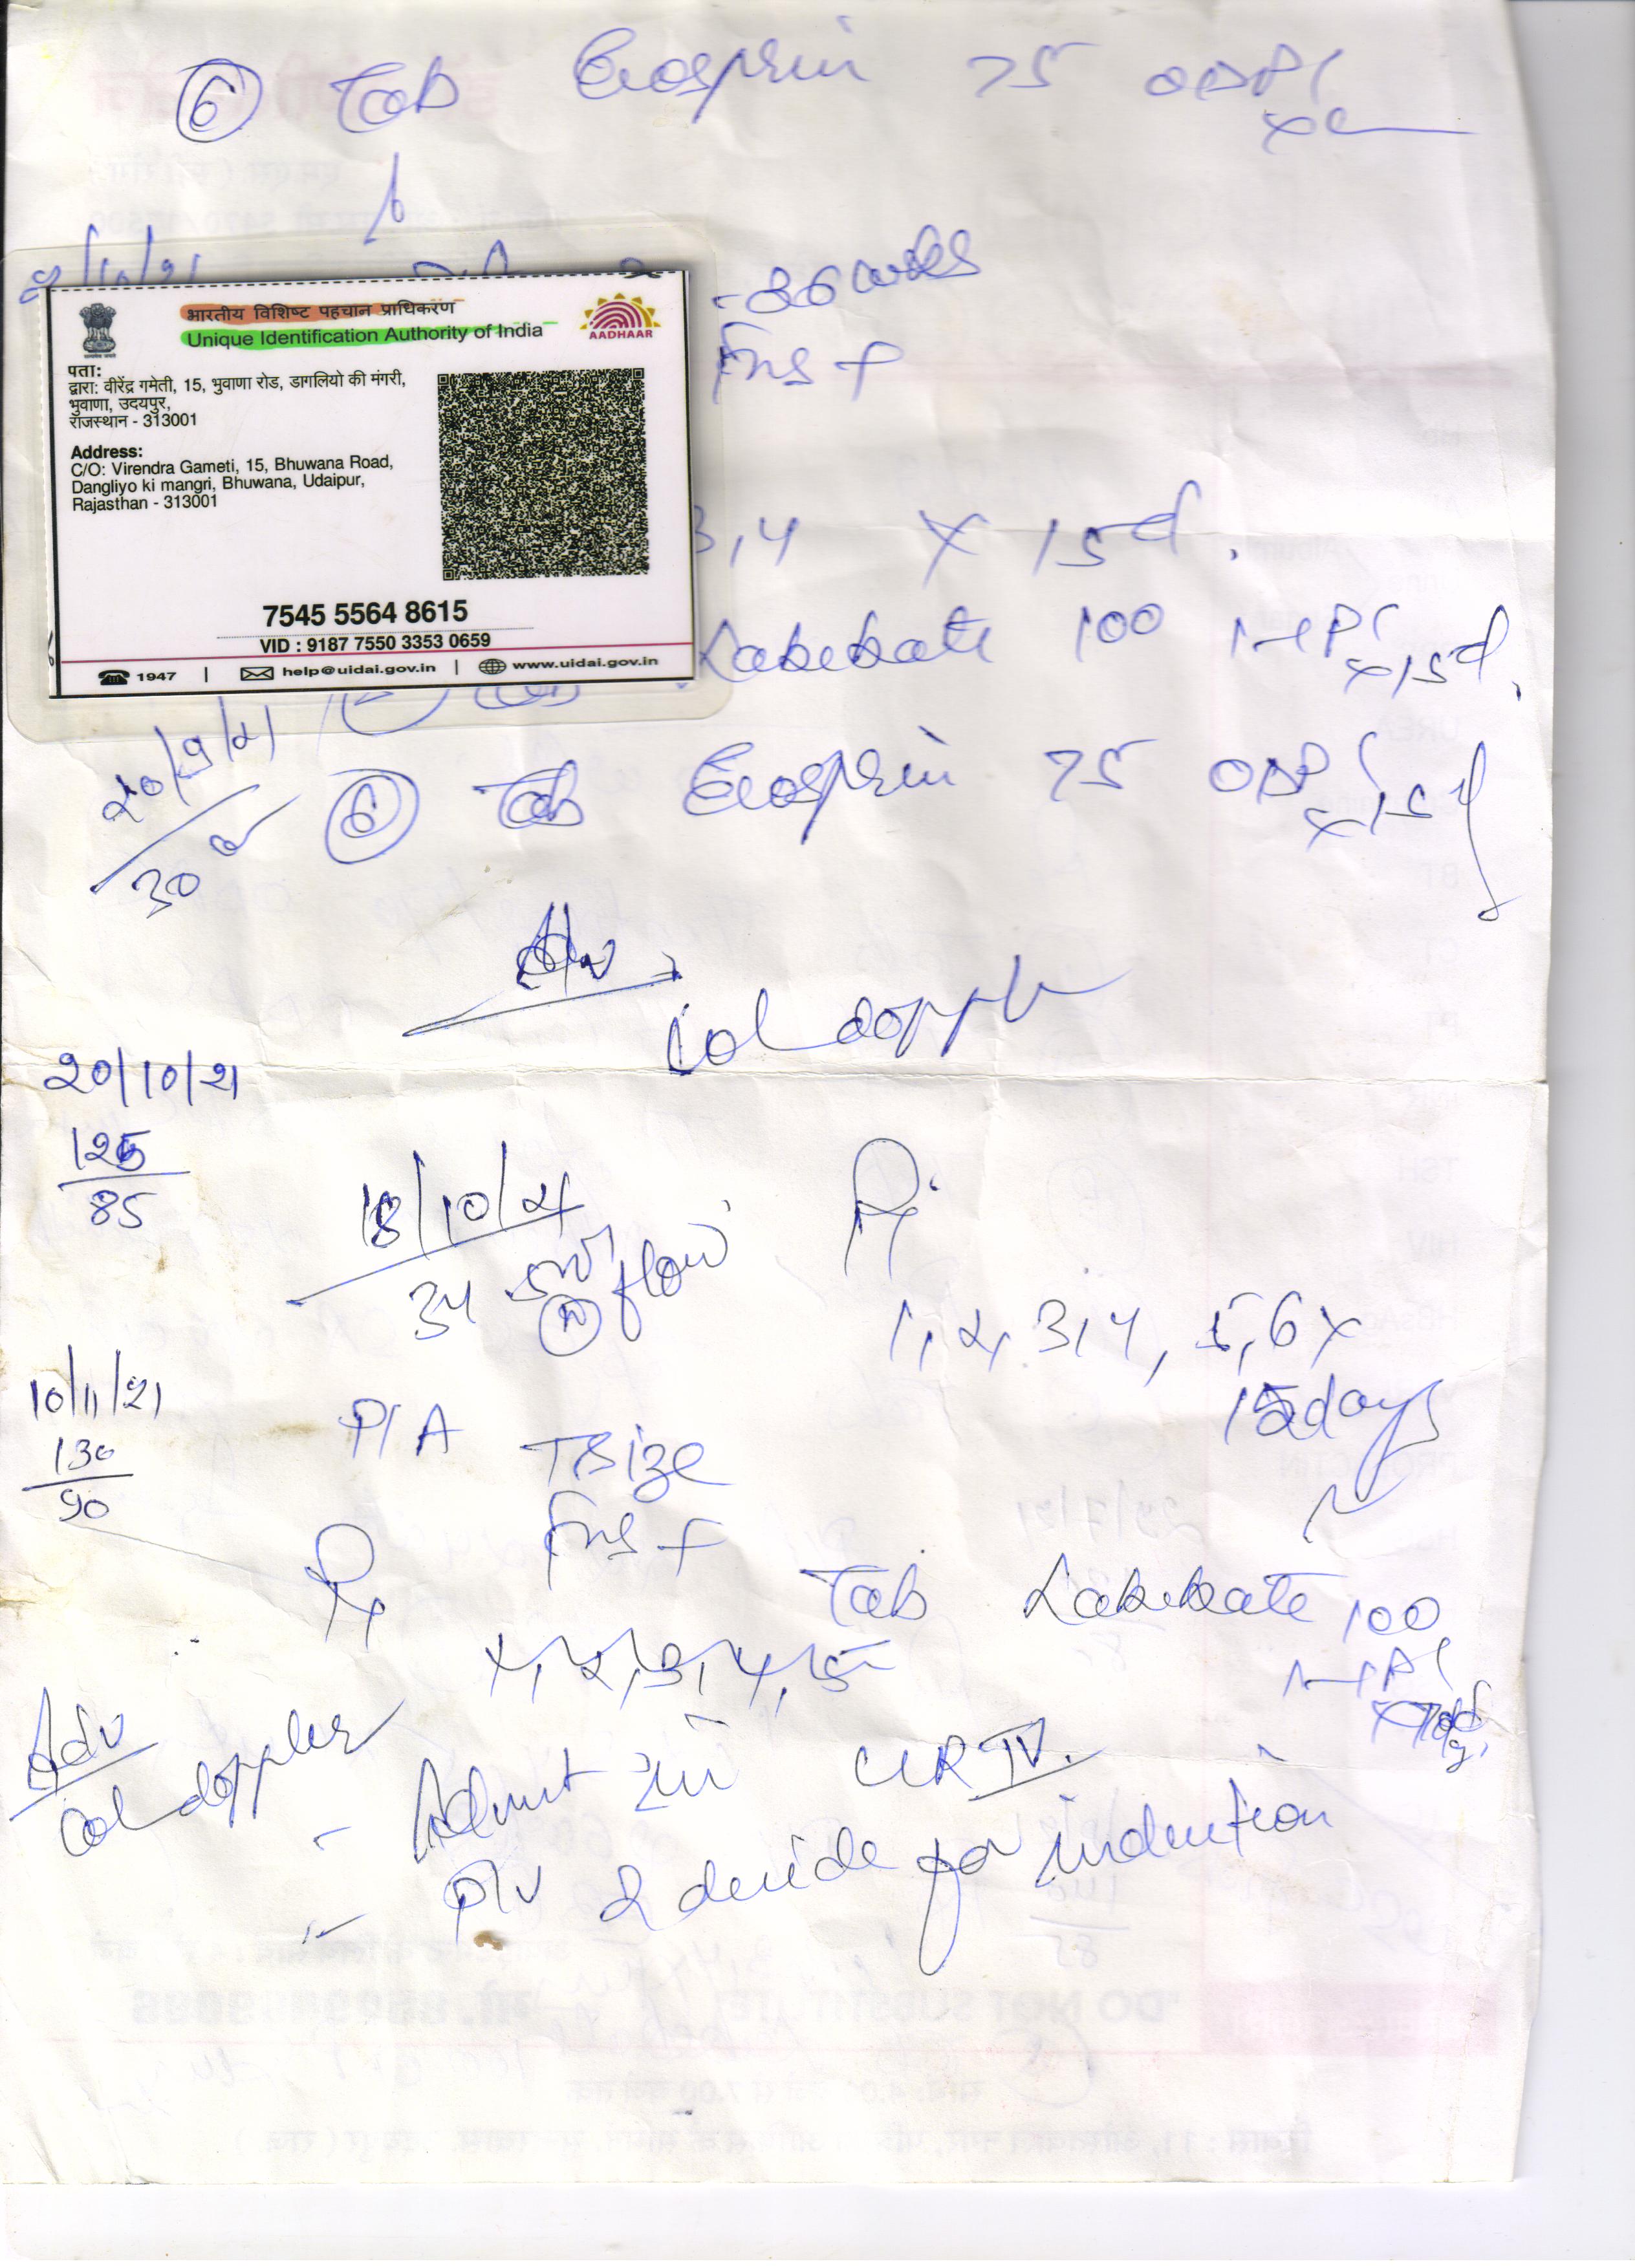 6 Tab Ecosprin 75 OD PC
-36 weeks
FHS +
भारतीय विशिष्ट पहचान प्राधिकरण
Unique Identification Authority of India
AADHAAR
पता:
द्वारा: वीरेंद्र गमेती, 15, भुवाणा रोड, डागलियो की मंगरी,
भुवाणा, उदयपुर,
राजस्थान - 313001
Address:
C/O: Virendra Gameti, 15, Bhuwana Road,
Dangliyo ki mangri, Bhuwana, Udaipur,
Rajasthan - 313001
7545 5564 8615
VID : 9187 7550 3353 0659
1947 | help@uidai.gov.in | www.uidai.gov.in
3,4 x 15d.
Labebate 100 PC x15d.
20/9/21
30
6 Tab Ecosprin 75 OD PC x15d
Adv
Col doppler
20/10/21
125
85
18/10/21
34
N flow
Rx
1, 2, 3, 4, 5, 6 x
15 days
10/11/21
130
90
P/A T Size
FHS +
Rx
1, 2, 3, 4, 5
Tab Labebate 100
Adv
Col doppler
- Admit in LR IV.
- P/V & decide for induction
DO NOT SUBSTITUTE